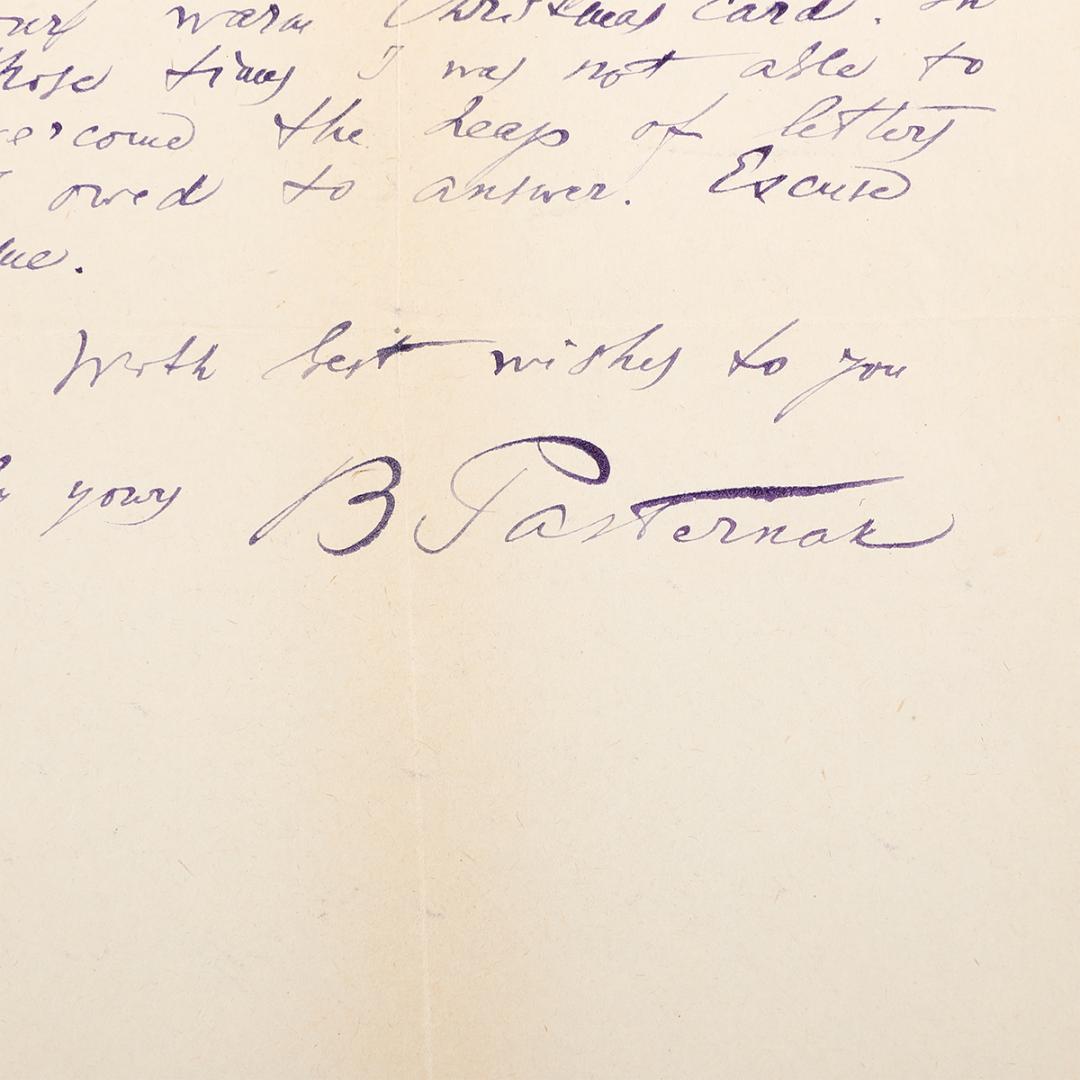 our warm Christmas card. In
those times I was not able to
overcome the heap of letters
I owed to answer. Excuse
me.
With best wishes to you
yours B Pasternak